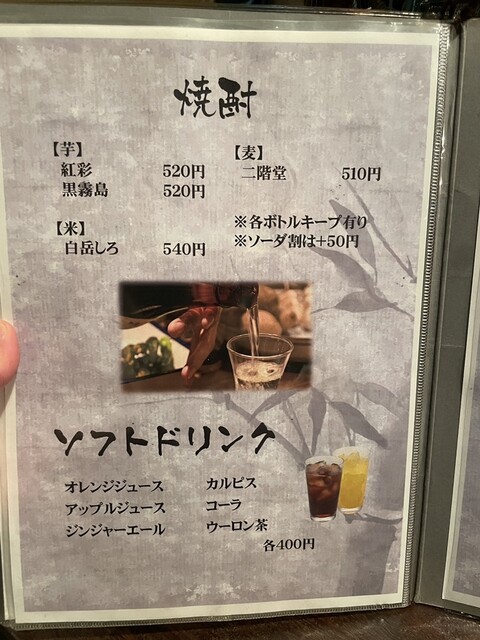 焼酎
【芋】
紅彩 520円
黒霧島 520円
【麦】
二階堂 510円
【米】
白岳しろ 540円
※各ボトルキープ有り
※ソーダ割は+50円
ソフトドリンク
オレンジジュース
アップルジュース
ジンジャーエール
カルピス
コーラ
ウーロン茶
各400円